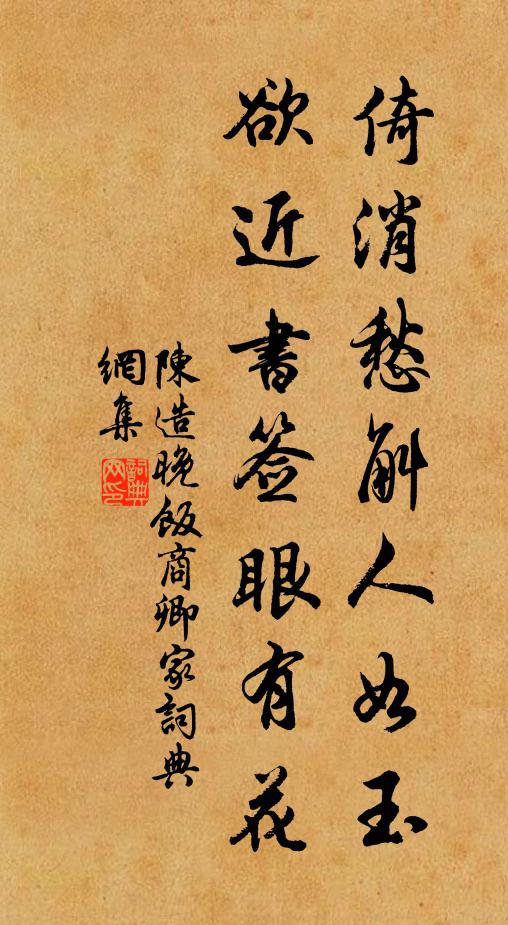 倚消愁斛人如玉
欲近書签眼有花
陳造晚飯商卿家詞典
網集
詞典
网印